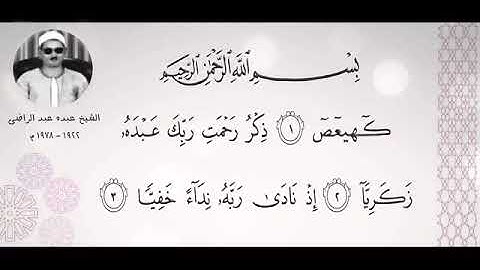 بِسْمِ ٱللَّهِ ٱلرَّحْمَٰنِ ٱلرَّحِيمِ
كٓهيعٓصٓ ١ ذِكْرُ رَحْمَتِ رَبِّكَ عَبْدَهُۥ
زَكَرِيَّآ ٢ إِذْ نَادَىٰ رَبَّهُۥ نِدَآءً خَفِيًّا ٣
الشيخ عبده عبد الراضى
١٩٢٢ - ١٩٧٨ م